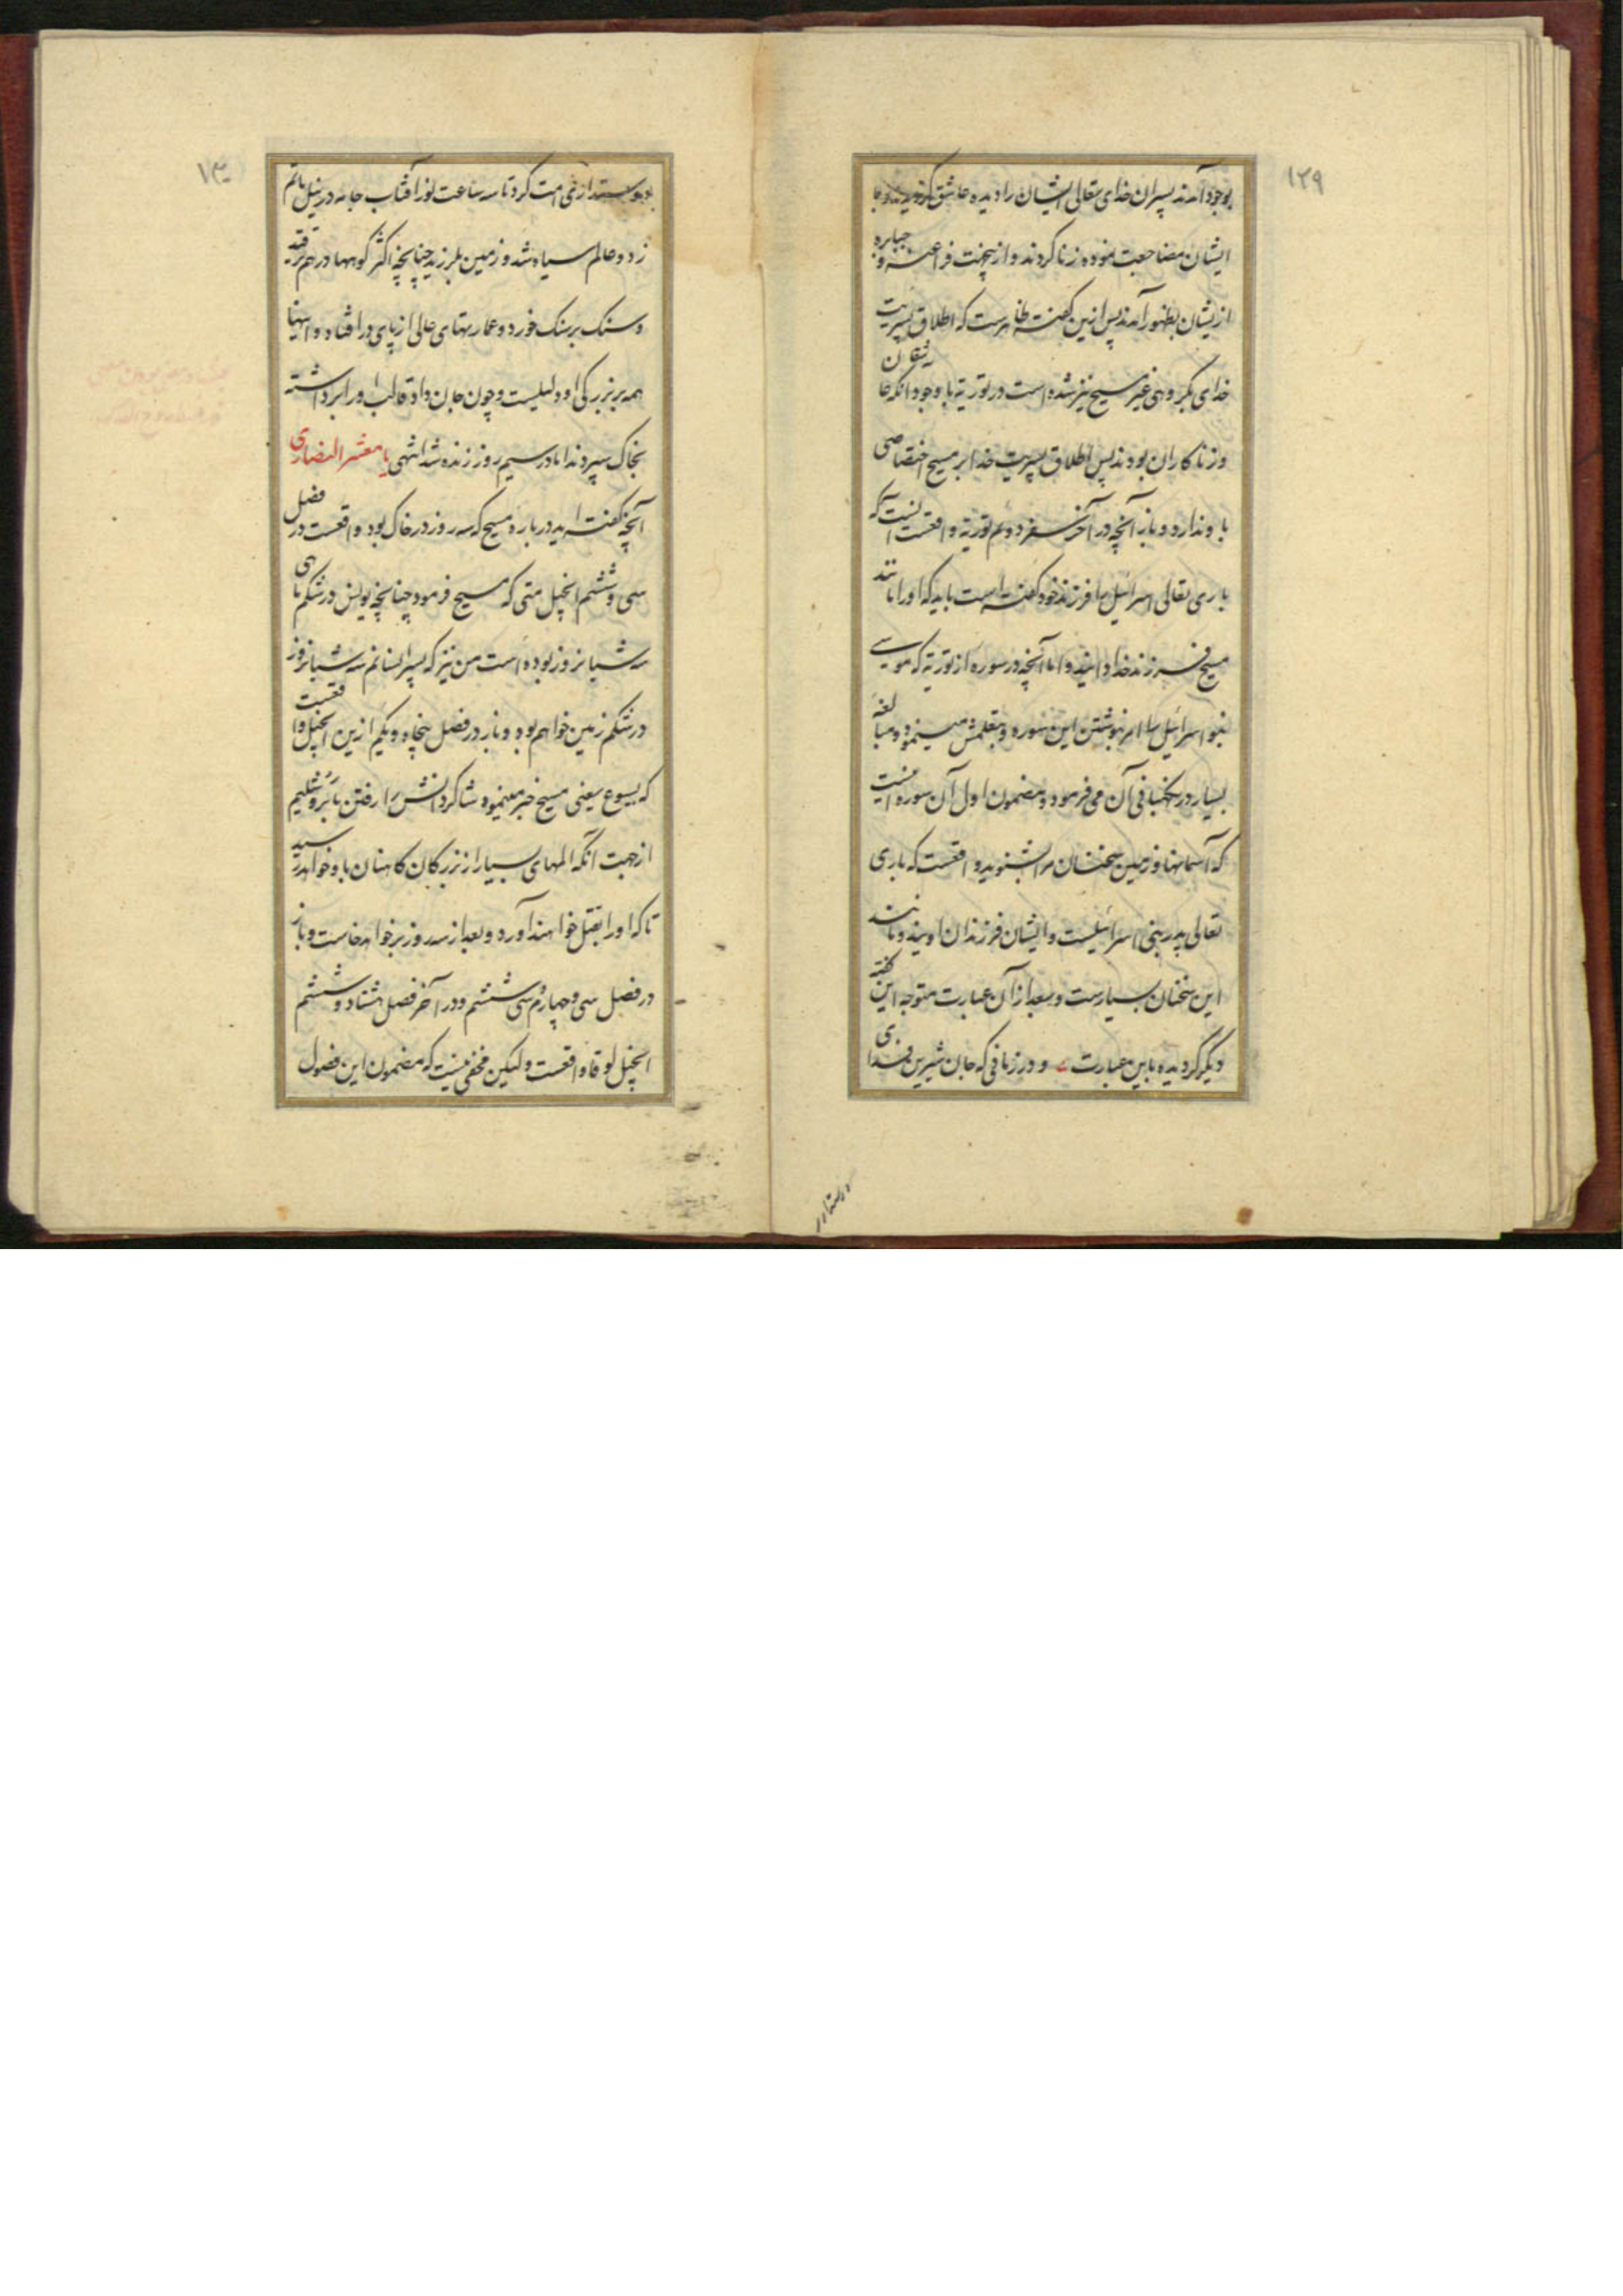 ۱۲۹
بوجود آمدند پسران خدای تعالی ایشان را دیده عاشق گردیدند و با
ایشان مضاجعت نموده زنا کردند و ازینجهت فراعنه و جبابره
ازیشان بظهور آمدند پس ازین گفته ظاهرست که اطلاق پسریت
خدای بگروهی غیر مسیح نیز شده است در توریة با وجود آنکه عاشقان
و زناکاران بودند پس اطلاق پسریت خدا بر مسیح اختصاصی
باو ندارد و باز آنچه در آخر سفر دوم توریة واقعست آنست که
باری تعالی اسرائیل را فرزند خود گفته است باید که او را مانند
مسیح فرزند خدا دانید و اما آنچه در سوره از توریة که موسی
بنو اسرائیل را امر بنوشتن این سوره و بتعلمش مینمود و مبالغهٔ
بسیار در نگهبانی آن می فرمود و مضمون اول آن سوره اینست
که آسمانها و زمین سخنان مرا بشنوید واقعست که باری
تعالی پدر بنی اسرائیلست و ایشان فرزندان اویند و مانند
این سخنان بسیارست و بعد از آن عبارت متوجه این گفته
دیگر گردیده باین عبارت و در زمانی که جان شیرین فدای
۱۳۰
از می امت کرد تا سه ساعت نور آفتاب جامه در نیل ماتم
زد و عالم سیاه شد و زمین بلرزید چنانچه اکثر کوهها در هم ترقید
و سنک بر سنک خورد و عمارتهای عالی از پای در افتاد و اینها
همه بر بزرگی او دلیلیست و چون جان داد قالب او را برداشته
بخاک سپردند اما در سیم روز زنده شد انتهی یا معشر النصاری
آنچه گفته اید در باره مسیح که سه روز در خاک بود واقعست در فصل
سی و ششم انجیل متی که مسیح فرمود چنانچه یونس در شکم ماهی
سه شبانروز بوده است من نیز که پسر انسانم سه شبانروز
در شکم زمین خواهم بود و باز در فصل پنجاه و یکم ازین انجیل واقعست
که یسوع یعنی مسیح خبر مینمود شاگردانش را رفتن باورشلیم
از جهت آنکه المهای بسیار از بزرگان کاهنان باو خواهد رسید
تا که او را بقتل خواهند آورد و بعد از سه روز بر خواهد خاست و باز
در فصل سی و چهارم و سی و ششم و در آخر فصل هشتاد و ششم
انجیل لوقا واقعست ولیکن مخفی نیست که مضمون این فصول